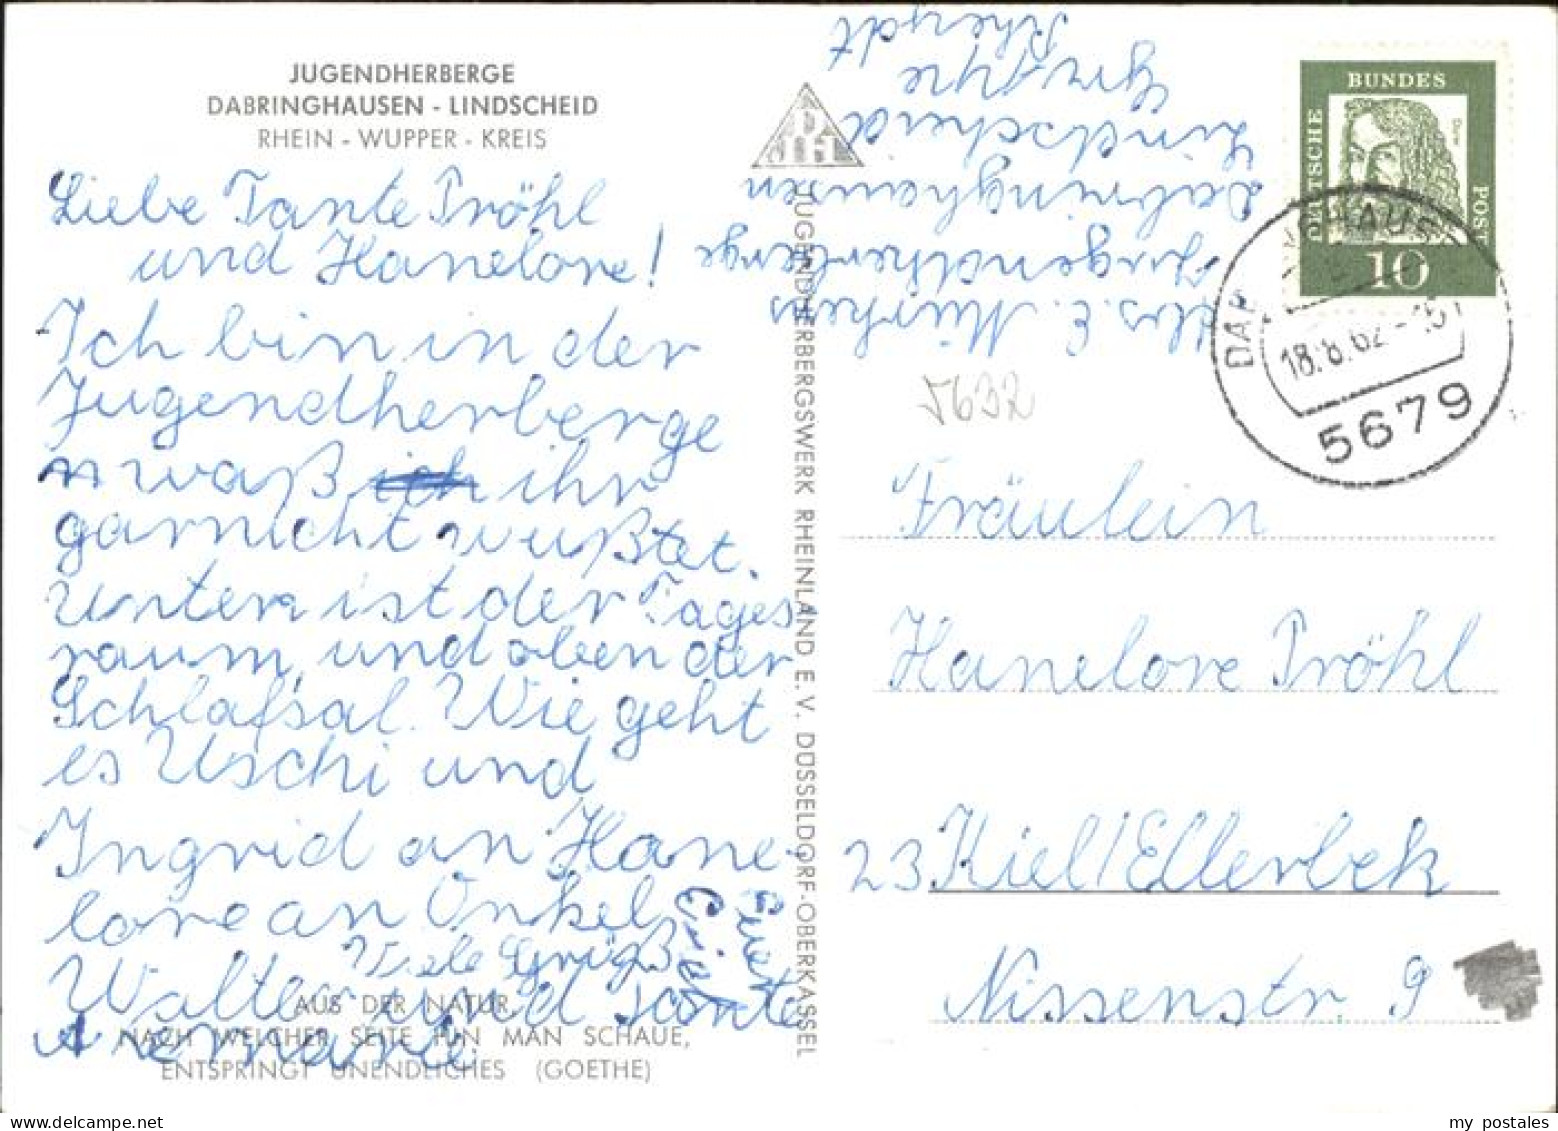 JUGENDHERBERGE
DABRINGHAUSEN - LINDSCHEID
RHEIN - WUPPER - KREIS
Liebe Tante Pröhl
und Hanelore!
Ich bin in der
Jugendherberge
waß ich ihr
garnicht wußtet.
Unten ist der Tages
raum, und oben der
Schlafsal. Wie geht
es Uschi und
Ingrid an Hane-
lore an Onkel
Walter und Tante
Viele Grüße
Euer
Erich
AUS DER NATUR,
NACH WELCHER SEITE HIN MAN SCHAUE,
ENTSPRINGT UNENDLICHES (GOETHE)
JUGENDHERBERGSWERK RHEINLAND E.V. DÜSSELDORF-OBERKASSEL
Abs. E. Mürkens
Jugendherberge
Dabringhausen
Lindscheid
Gruppe
Rheydt
DEUTSCHE
BUNDES
POST
10
18.8.62-15
5679
5632
Fräulein
Hanelore Pröhl
23 Kiel/Ellerbek
Nissenstr. 9
my postales